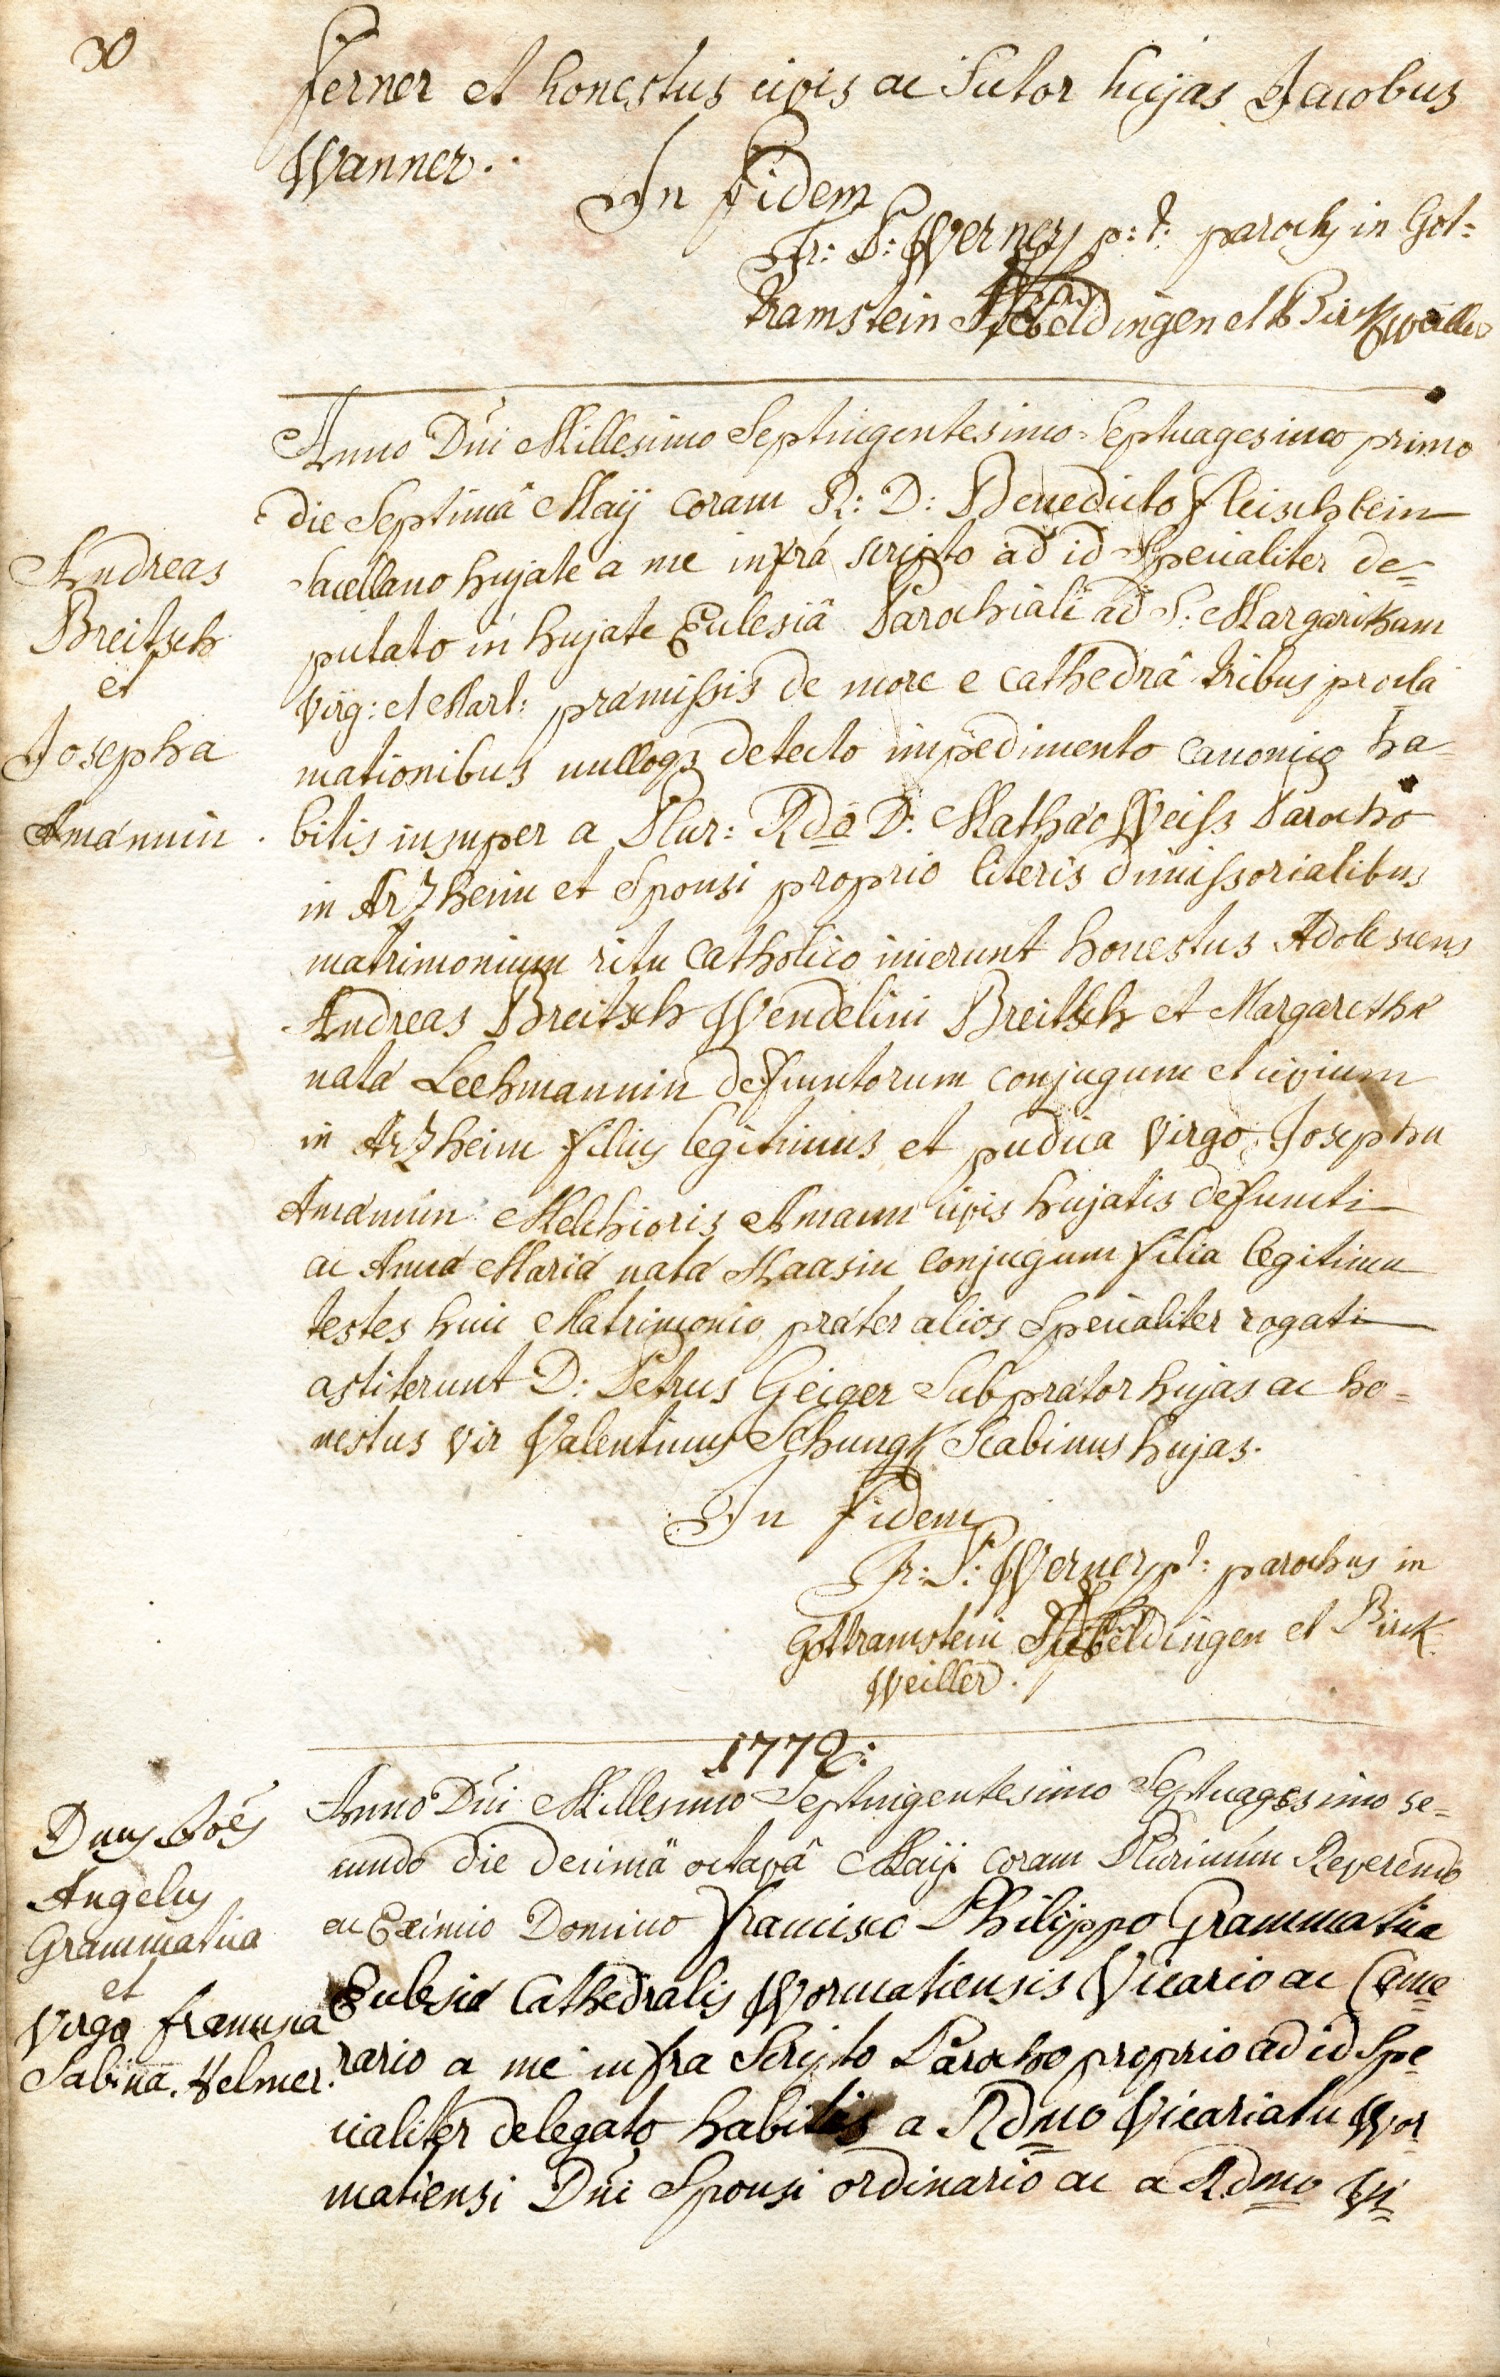 30
ferner et honestus civis ac Sutor hujas Jacobus
Wanner.
In fidem
Fr: P: Werner p: t: parochus in Got:
tramstein Siebeldingen et Birckweiller
Anno Dni Millesimo Septingentesimo Septuagesimo primo
die Septimâ Maij coram R: D: Benedicto Fleischbein
Sacellano hujate a me infrá scripto ad id Specialiter de=
putato in hujate Ecclesiâ Parochiali ad S: Margaritham
Virg: et Mart: præmissis de more e cathedrâ tribus procla
mationibus nulloqz detecto impedimento canonico ha=
bitis insuper a Plur: Rdo D: Mathæo Weiss Parocho
in Arzheim et Sponsi proprio literis dimissorialibus
matrimonium ritu catholico inierunt honestus Adolescens
Andreas Breitsch Wendelini Breitsch et Margarethæ
natæ Leehmannin defunctorum conjugum et civium
in Arzheim filius legitimus et pudica virgo Josepha
Amännin Melchioris Amann civis hujatis defuncti
ac Annæ Mariæ natæ Haasin conjugum filia legitima
testes huic Matrimonio præter alios Specialiter rogati
astiterunt D: Petrus Geiger Subprætor hujas ac ho=
nestus vir Valentinus Schungk Scabinus hujas.
In fidem
Fr: P: Werner p t: parochus in
Gottramstein Siebeldingen et Birck
weiller.
Andreas
Breitsch
et
Josepha
Amännin.
1772:
Anno Dni Millesimo Septingentesimo Septuagesimo se=
cundo die decimâ octavâ Maij coram Plurimúm Reverendo
ac Eximio Domino Francisco Philippo Grammatica
Ecclesiæ Cathedralis Wormatiensis Vicario ac Came
rario a me infra Scripto Parocho proprio ad id Spe
cialiter delegato habitis a Rdmo Vicariatu Wor
matiensi Dni Sponsi ordinario ac a Rdmo Vi
Dnus Joés
Angelus
Grammatica
et
Virgo Francisca
Sabina Helmer.